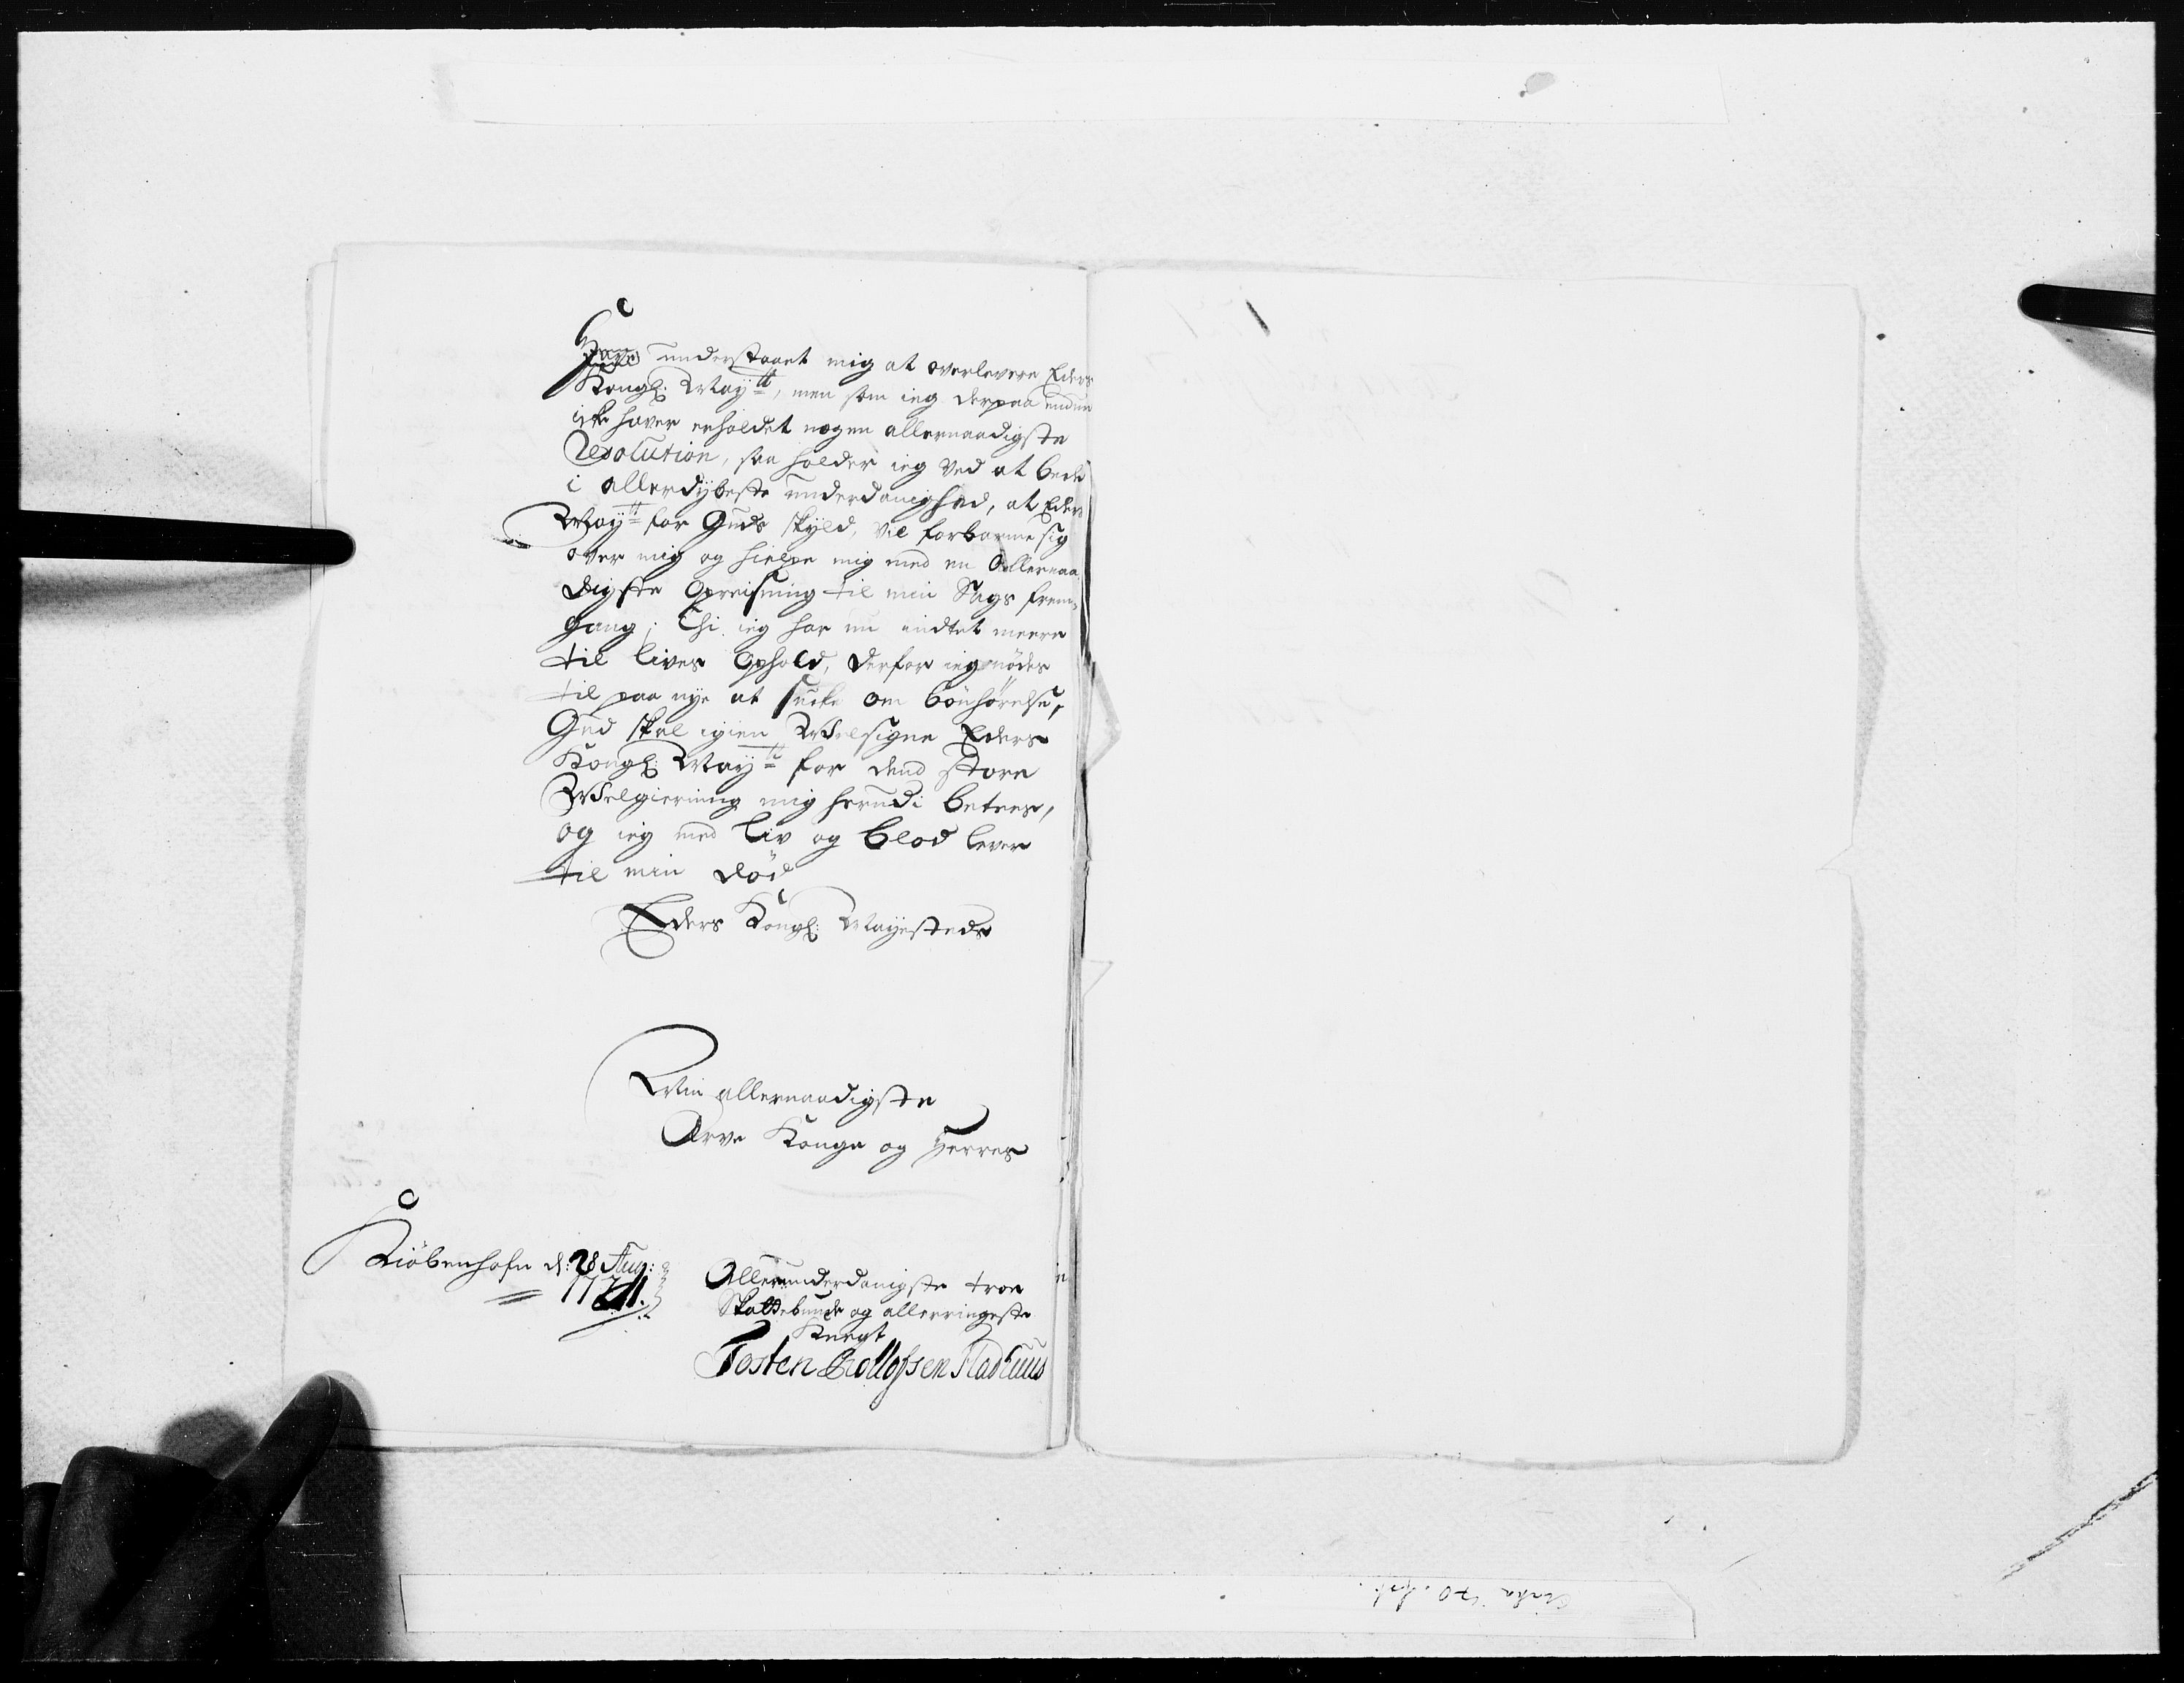 understaaet mig at overlevere Eders
Kongl: May:tt, men som ieg derpaa endnu
icke haver erholdet nogen allernaadigste
Resolution, saa holder ieg ved at bede
i allerdybeste underdanighed, at Eders
May:tt for Guds skyld, vil forbarme sig
over mig og hielpe mig med en Allernaa
digste Opreisning til min Sags frem-
gang; Thi ieg har nu indtet meere
til lives Ophold, derfor ieg nødes
til paa nye at sucke om bönhörelse,
Gud skal igien Velsigne Eders
Kongl: May:tt for dend store
Velgierning mig herudi betees,
og ieg med liv og blod lever
til min död
Eders Kongl: Mayesteds
Min allernaadigste
Arve Konge og Herres
Kiöbenhafn d: 28 Aug:
Allerunderdanigste troe
Skattebunde og allerringeste
Knegt
Tosten Rollofsen Fladhuus